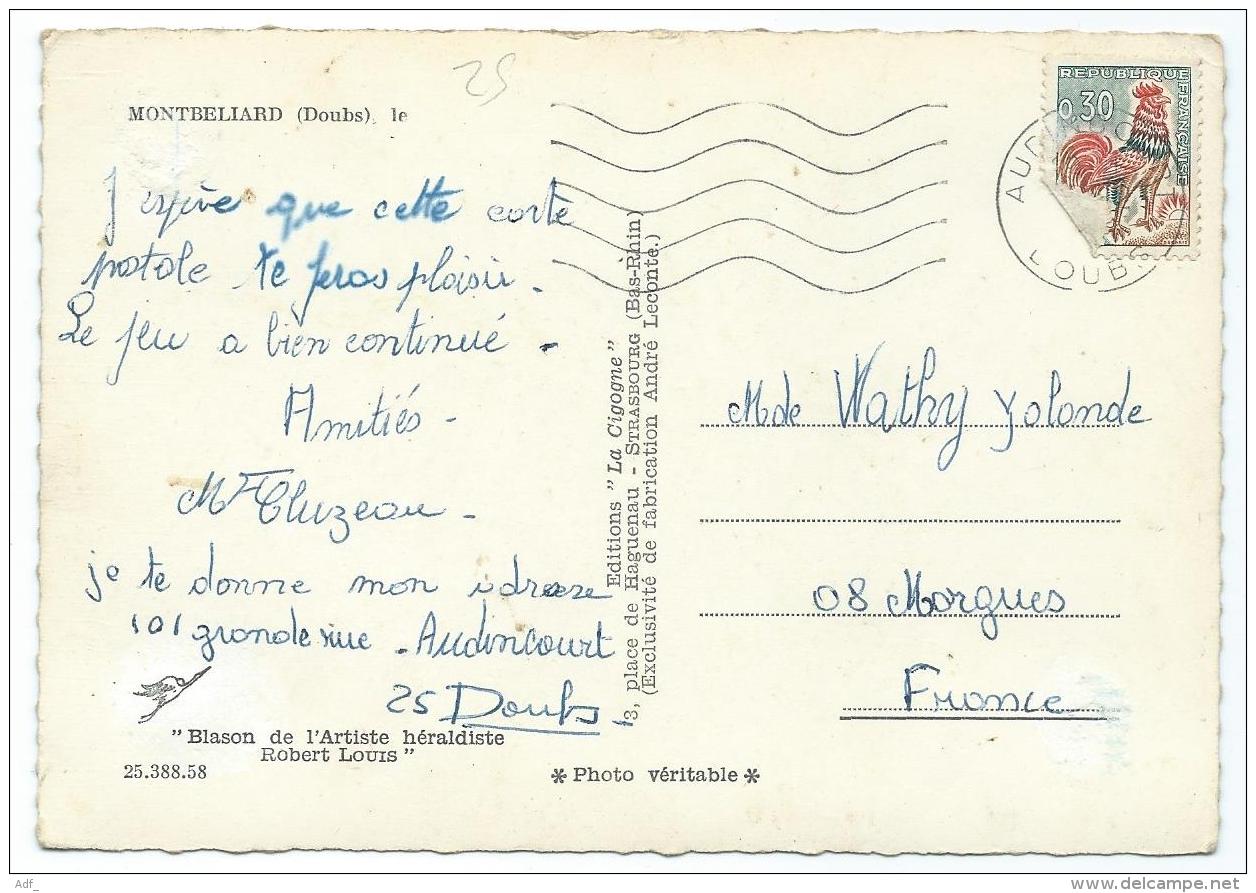 25
MONTBELIARD (Doubs), le
J'espère que cette carte
postale te feras plaisir.
Le jeu a bien continué.
Amitiés -
Cluzeau -
je te donne mon adresse
101 grande rue - Audincourt
25 Doubs
"Blason de l'Artiste héraldiste
Robert LOUIS"
25.388.58
Editions "La Cigogne"
3, place de Haguenau - STRASBOURG (Bas-Rhin)
(Exclusivité de fabrication André Leconte.)
* Photo véritable *
REPUBLIQUE FRANÇAISE
0,30
DOUBS
Mde Wathy Yolande
08 Margues
France
Adf_
www.delcampe.net